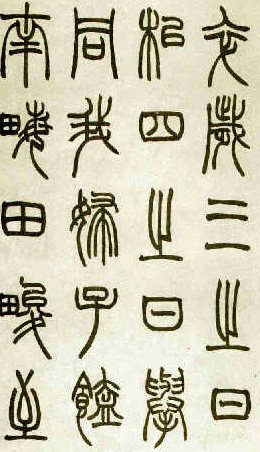 卒歲三之日
耜四之日舉
同我婦子饁
南畮田畯至